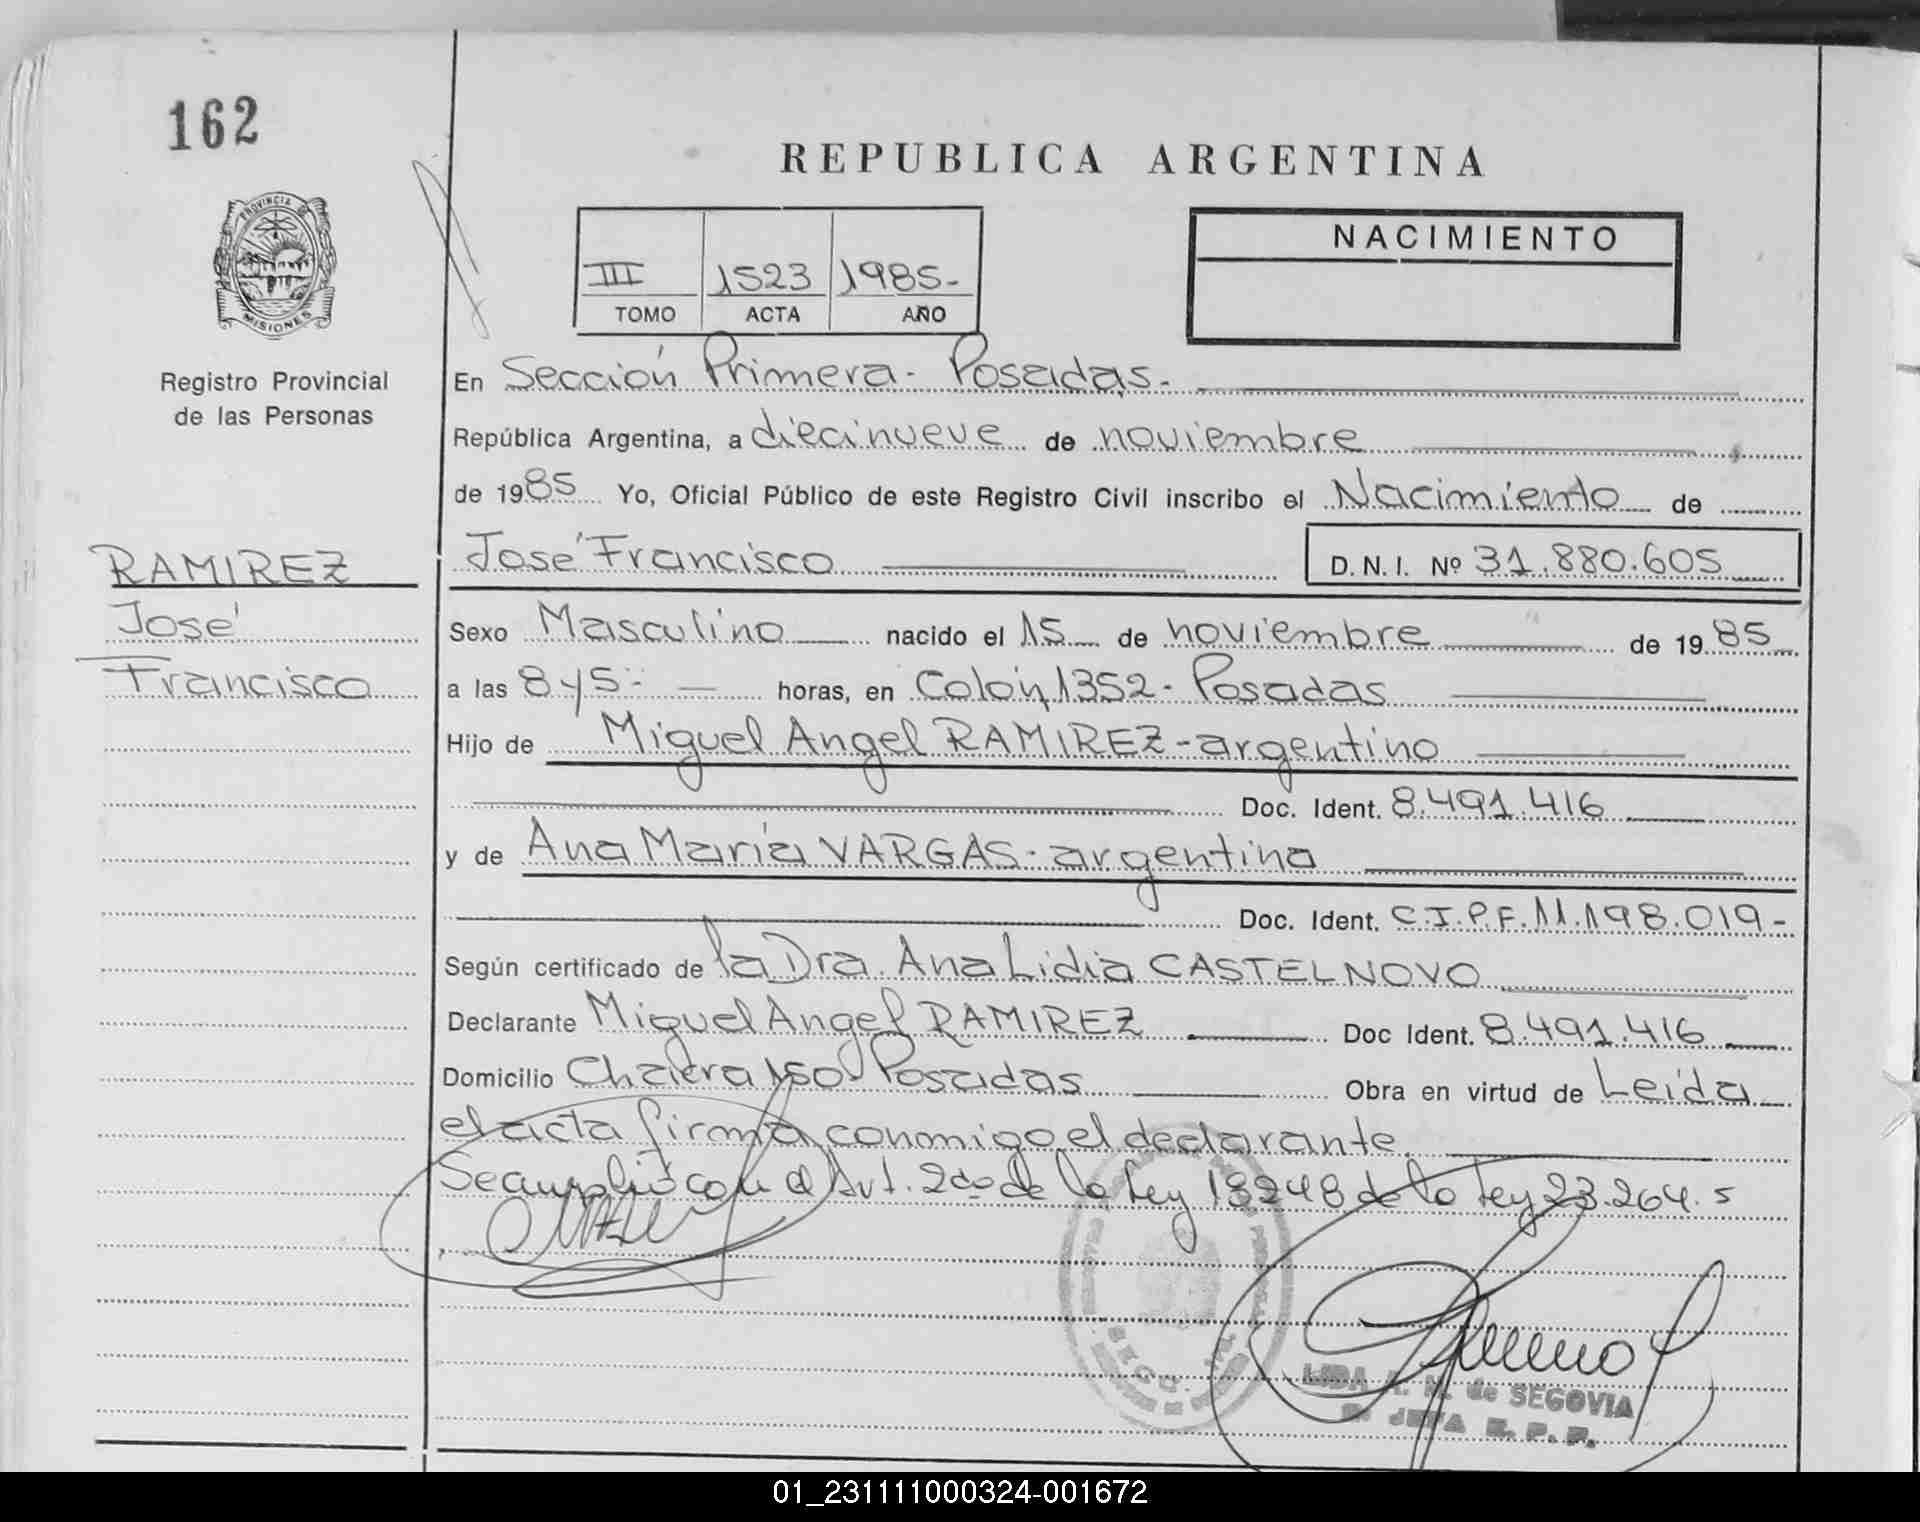 162
REPUBLICA ARGENTINA
PROVINCIA DE
MISIONES
NACIMIENTO
III 1523 1985-
TOMO ACTA AÑO
Registro Provincial
de las Personas
En Sección Primera - Posadas.
República Argentina, a diecinueve de noviembre
de 1985 Yo, Oficial Público de este Registro Civil inscribo el Nacimiento de
RAMIREZ
José
Francisco
José Francisco D.N.I. Nº 31.880.605
Sexo Masculino nacido el 15 de noviembre de 1985
a las 8 y 5 horas, en Colón 1352 - Posadas
Hijo de Miguel Angel RAMIREZ - argentino
Doc. Ident. 8.491.416
y de Ana María VARGAS - argentina
Doc. Ident. C.I.P.F. 11.198.019-
Según certificado de la Dra. Ana Lidia CASTELNOVO
Declarante Miguel Angel RAMIREZ Doc Ident. 8.491.416
Domicilio Chacra 150 - Posadas Obra en virtud de Leída
el acta firma conmigo el declarante.
Se cumplió con el Art. 2do de la Ley 18248 de la Ley 23.264.
LIDA A. M. de SEGOVIA
JEFA R. P. P.
01_231111000324-001672